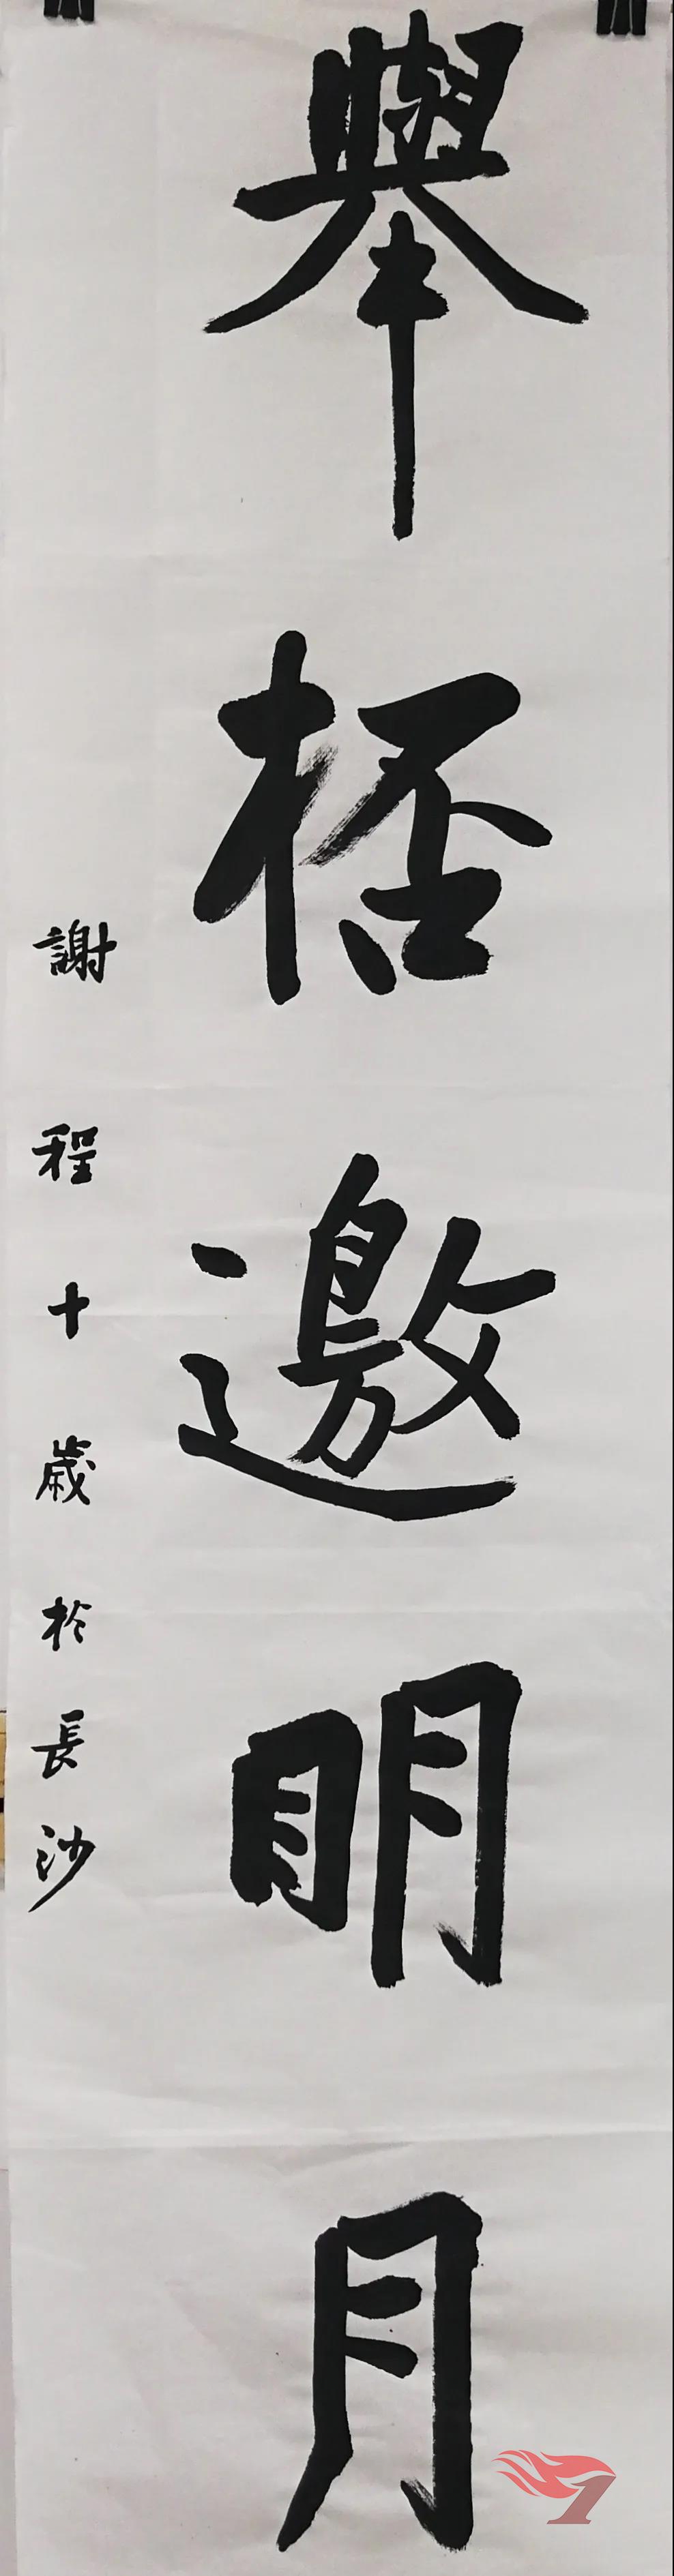 舉桮邀明月
謝程十歲於長沙
1